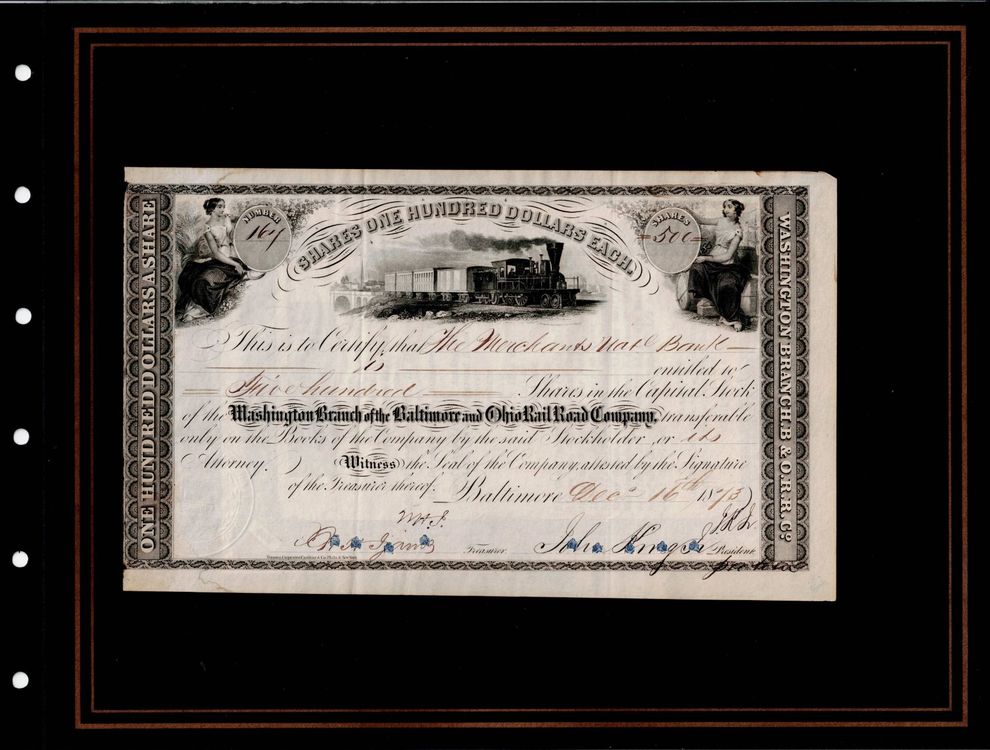 NUMBER
164
SHARES ONE HUNDRED DOLLARS EACH.
SHARES
500
ONE HUNDRED DOLLARS A SHARE
WASHINGTON BRANCH B & O R R. Co
This is to Certify, that The Merchants Nat Bank
is entitled to
Five hundred Shares in the Capital Stock
of the Washington Branch of the Baltimore and Ohio Rail Road Company, transferable
only on the Books of the Company by the said Stockholder or its
Attorney.
Witness the Seal of the Company, attested by the Signature
of the Treasurer thereof. Baltimore Dec 16th 1873
Treasurer.
John King Jr President
pro tem